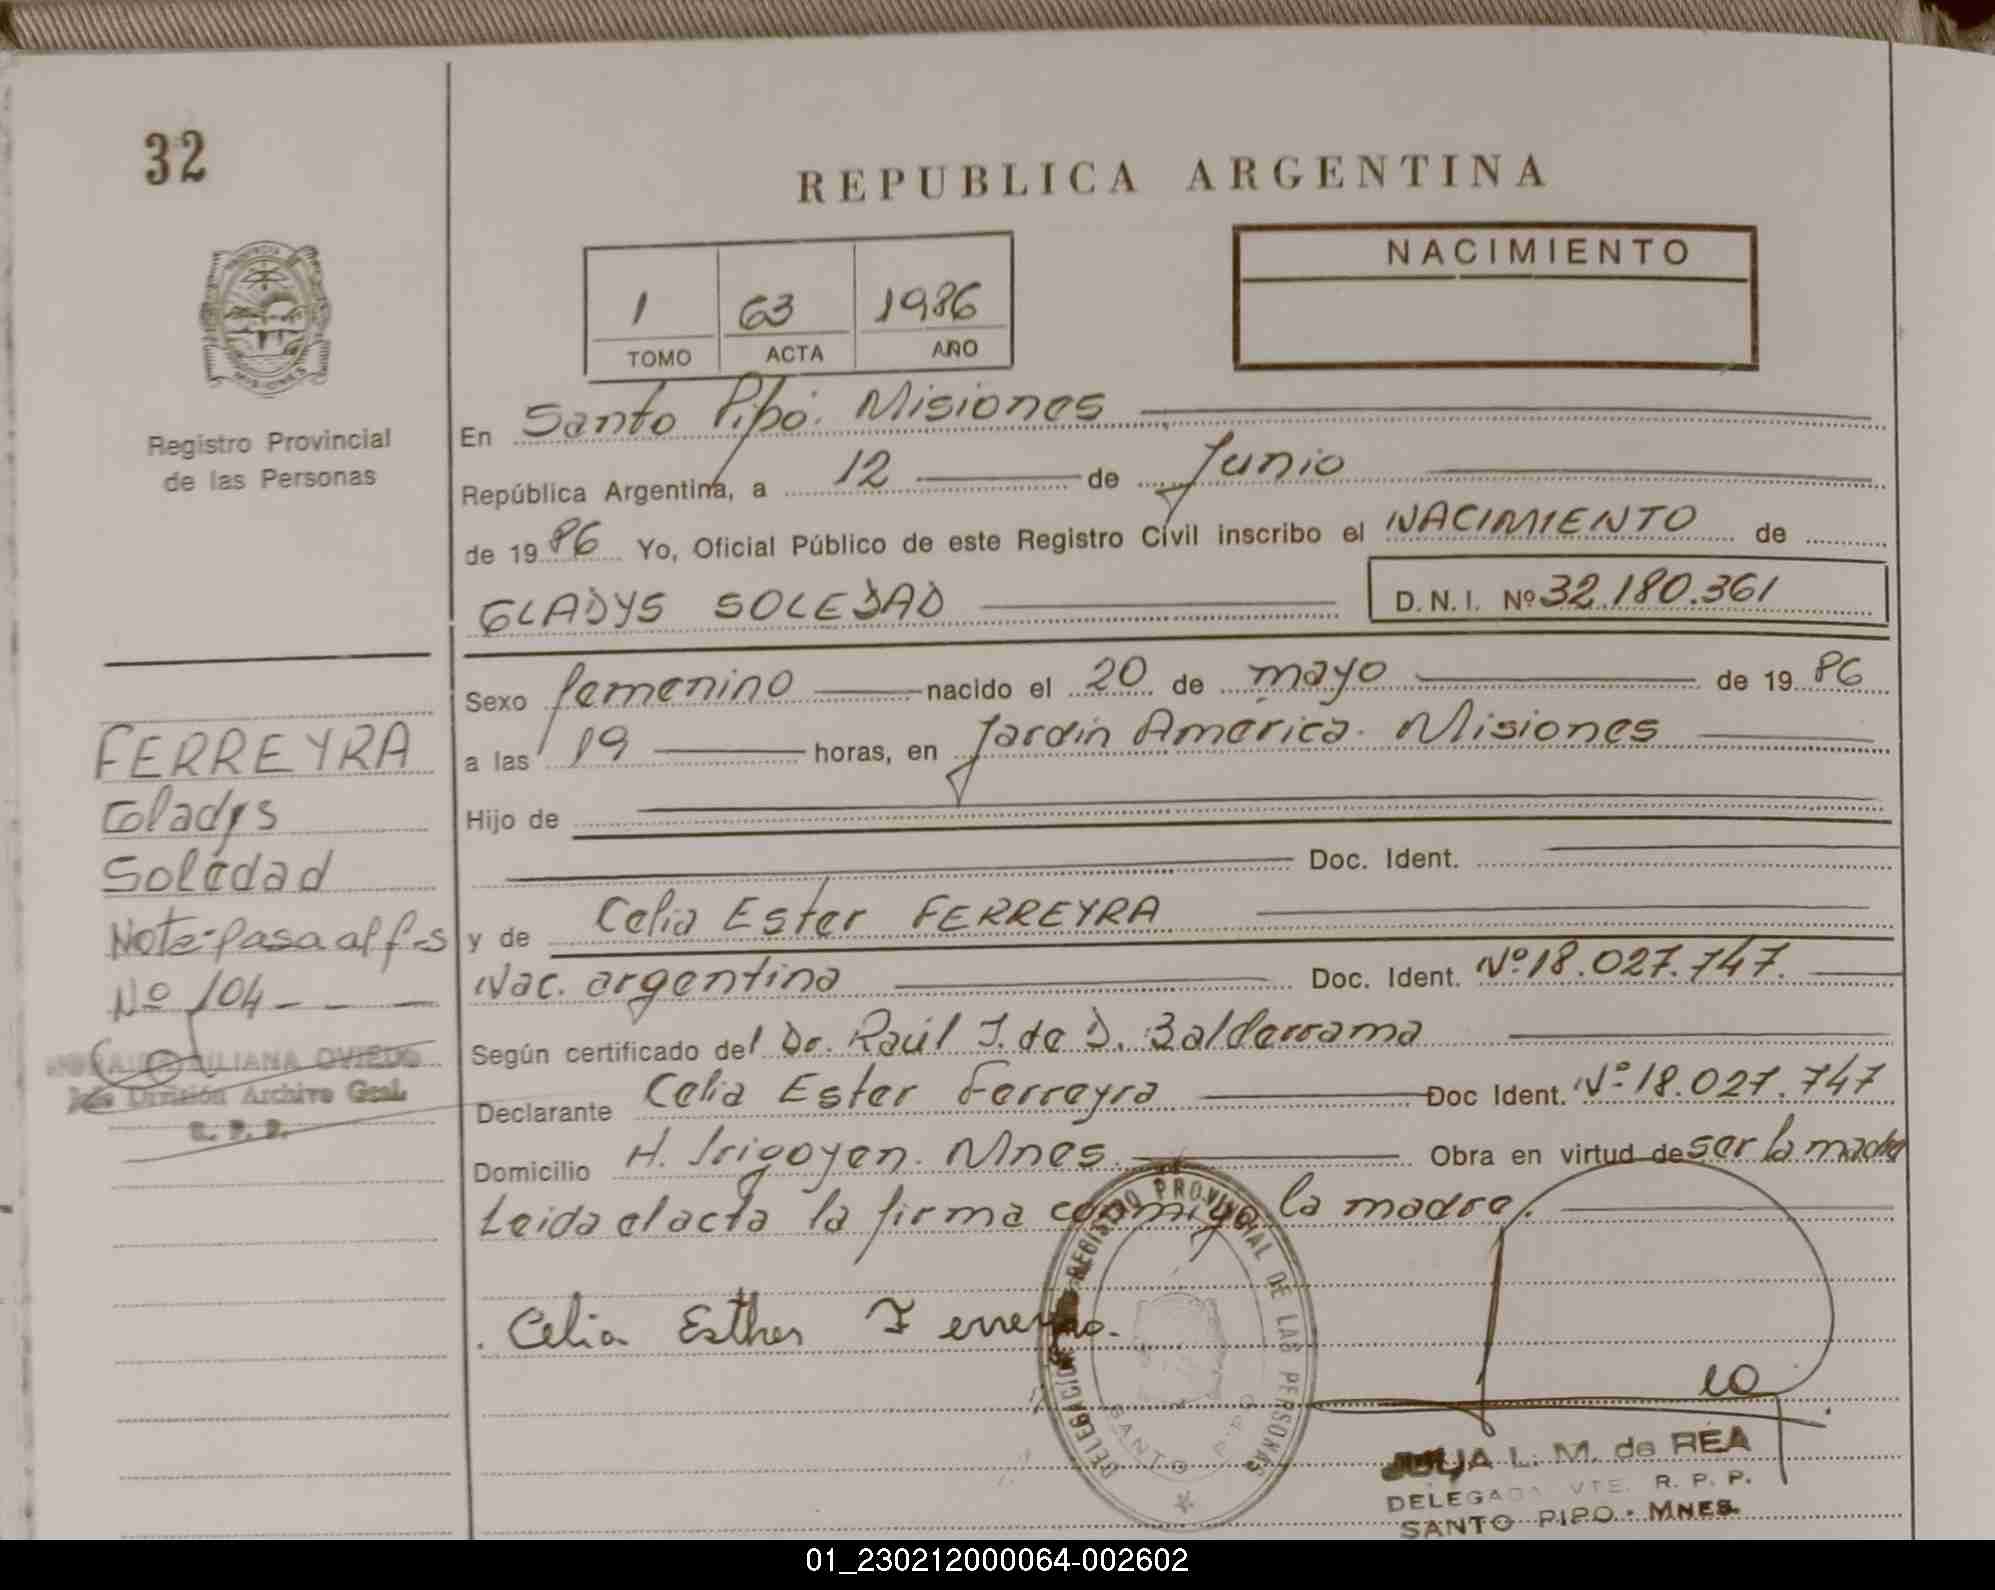 32
REPUBLICA ARGENTINA
PROVINCIA DE
MISIONES
NACIMIENTO
1 63 1986
TOMO ACTA AÑO
Registro Provincial
de las Personas
En Santo Pipó. Misiones
República Argentina, a 12 de Junio
de 1986 Yo, Oficial Público de este Registro Civil inscribo el NACIMIENTO de
GLADYS SOLEDAD D.N.I. Nº 32.180.361
Sexo femenino nacido el 20 de mayo de 1986
a las 19 horas, en Jardín América. Misiones
Hijo de
Doc. Ident.
y de Celia Ester FERREYRA
Nac. argentina Doc. Ident. Nº 18.027.747.
Según certificado del Dr. Raúl J. de D. Balderrama
Declarante Celia Ester Ferreyra Doc Ident. Nº 18.027.747
Domicilio H. Irigoyen. Mnes. Obra en virtud de ser la madre
Leida el acta la firma conmigo la madre.
FERREYRA
Gladys
Soledad
Nota: Pasa al f-s
Nº 104
LILIANA OVIEDO
Jefe División Archivo Gral.
R. P. P.
Celia Esther Ferreyra.
DELEGACION REGISTRO PROVINCIAL DE LAS PERSONAS
SANTO PIPO
JULIA L. M. de REA
DELEGADA VTE. R. P. P.
SANTO PIPO - MNES.
01_230212000064-002602